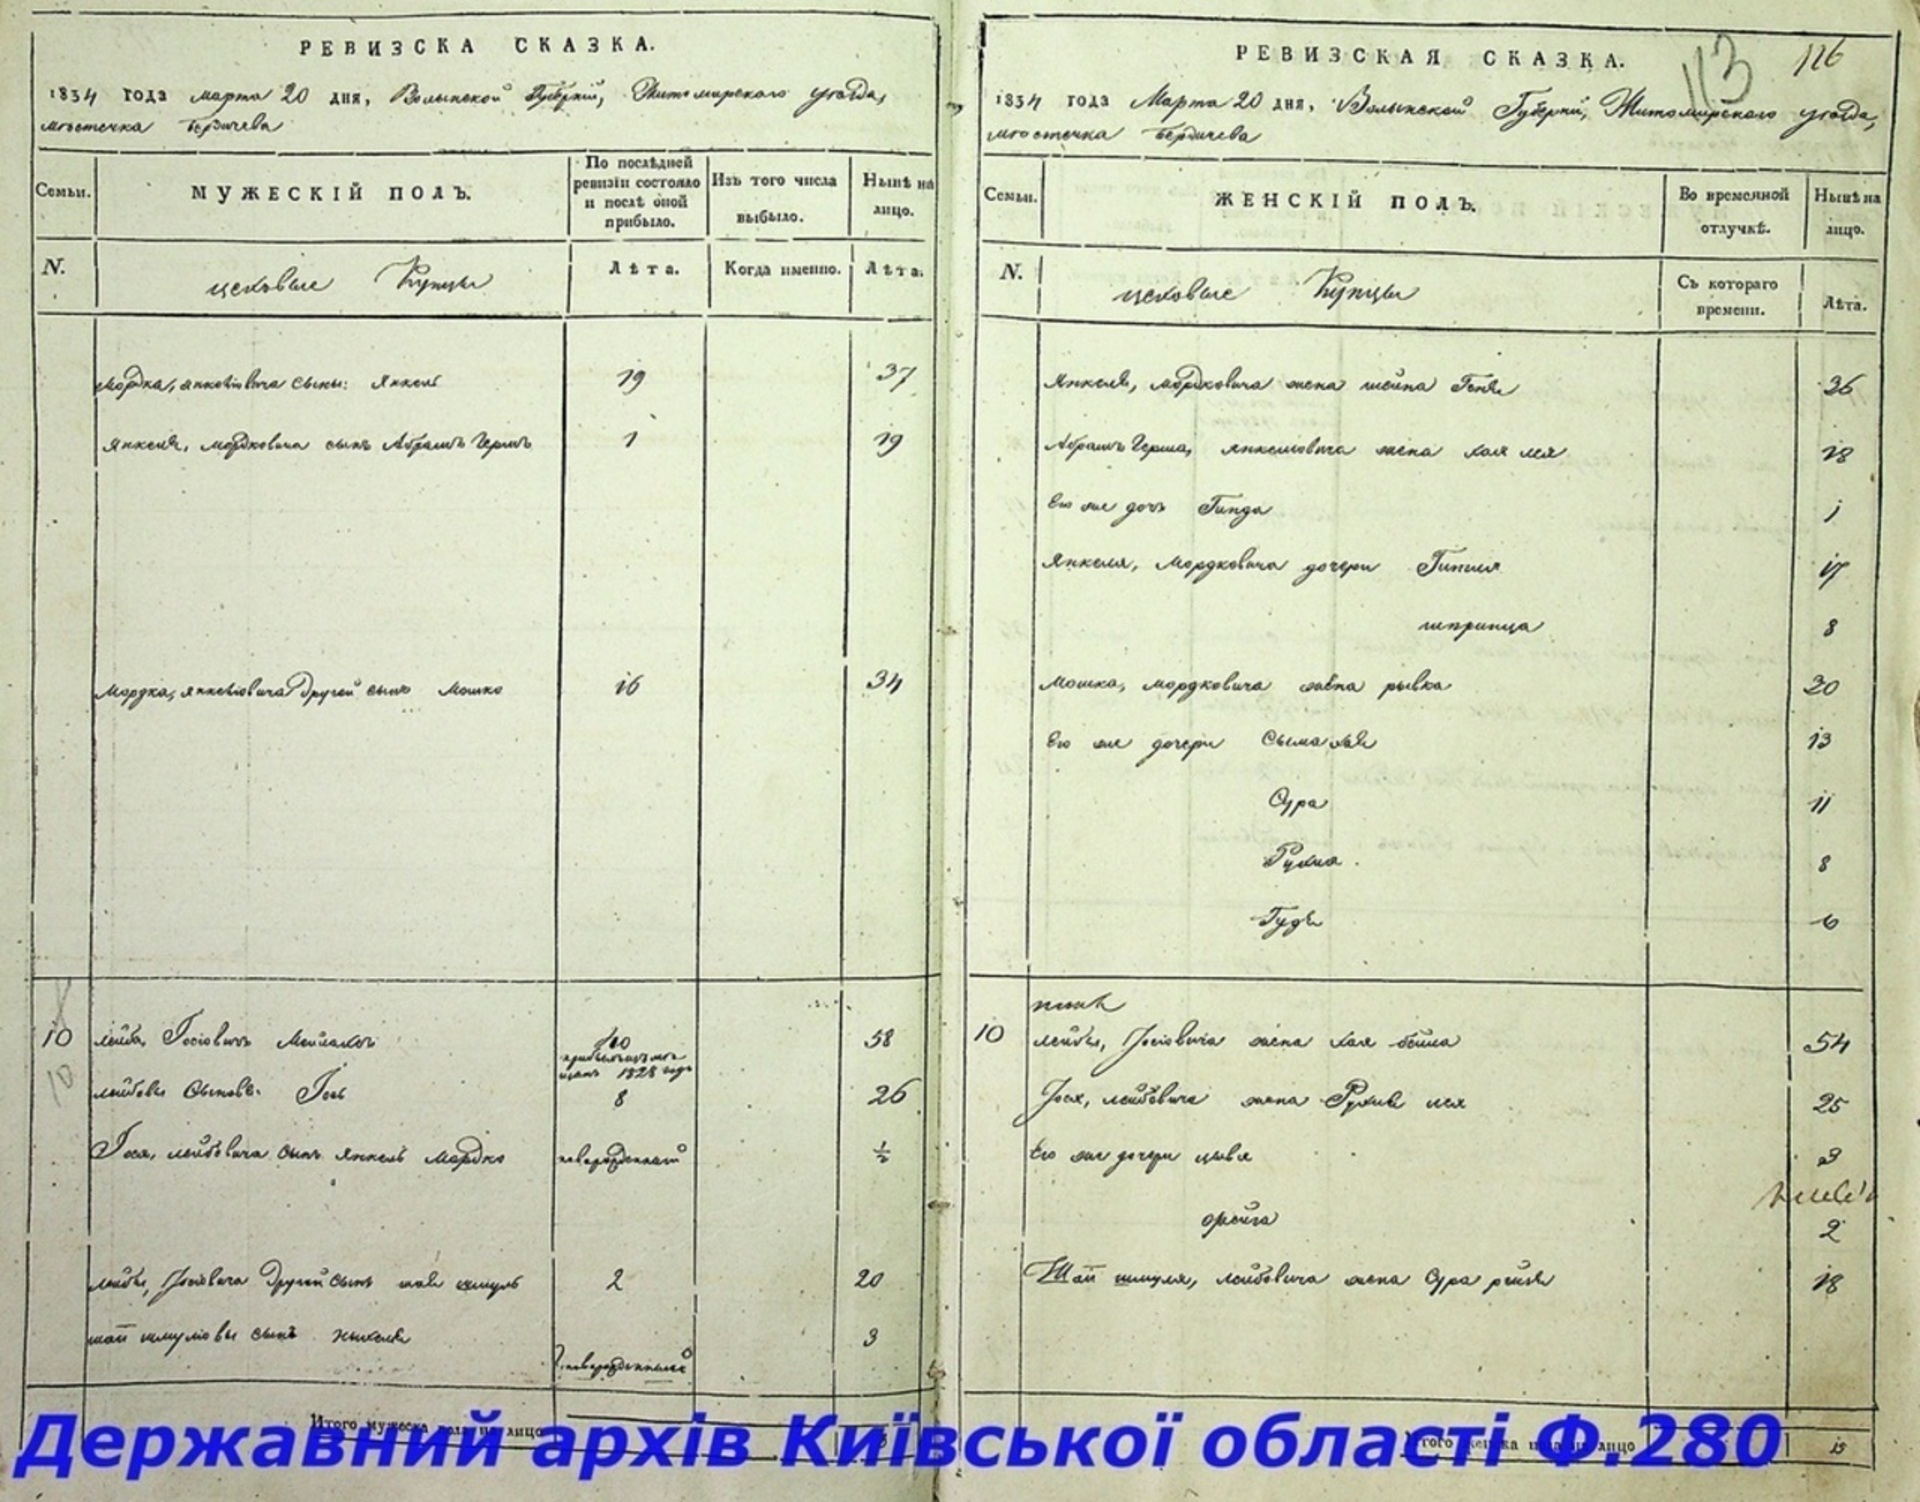 РЕВИЗСКА СКАЗКА.
1834 года марта 20 дня, Волынской Губернiи, Житомирского уезда,
местечка Бердичева
Семьи.
МУЖЕСКIЙ ПОЛЪ.
По послѣдней ревизiи состояло и послѣ оной прибыло.
Изъ того числа выбыло.
Нынѣ на лицо.
N.
цеховые Купцы
Лѣта.
Когда именно.
Лѣта.
Мордка, Янкелiовича сыны: Янкель 19 37
Янкеля, Мордковича сынъ Абрамъ Гершъ 1 19
Мордка, Янкелiовича другой сынъ Мошко 16 34
10 Лейба Iосiовичъ 40 58
прибылъ 1828 года
Лейбовы сыновья: Iось 8 26
Iося, Лейбовича сынъ Янкель Мордко новорожденный ½
Лейбы, Iосiовича другой сынъ Шая Шмуль 2 20
Шаи Шмулiовы сынъ 3
новорожденный
Итого мужеска пола на лицо
РЕВИЗСКАЯ СКАЗКА.
113 116
1834 года Марта 20 дня, Волынской Губернiи, Житомирского уезда,
местечка Бердичева
Семьи.
ЖЕНСКIЙ ПОЛЪ.
Во временной отлучкѣ.
Нынѣ на лицо.
N.
цеховые Купцы
Съ котораго времени.
Лѣта.
Янкеля, Мордковича жена Шейна Геня 36
Абрамъ Герша, Янкелiовича жена Хая Лея 18
Его же дочь Гинда 1
Янкеля, Мордковича дочери 17
Шпринца 8
Мошка, Мордковича жена Рывка 30
Его же дочери Сыма Хая 13
Сура 11
Рухля 8
6
10 Лейбы, Iосiовича жена Хая Бейла 54
Iося, Лейбовича жена Рухля Лея 25
Его же дочери Цывя 3
Фрейга 2
Шаи Шмуля, Лейбовича жена Сура Рейзя 18
Итого женска пола на лицо 15
Державний архів Київської області Ф.280